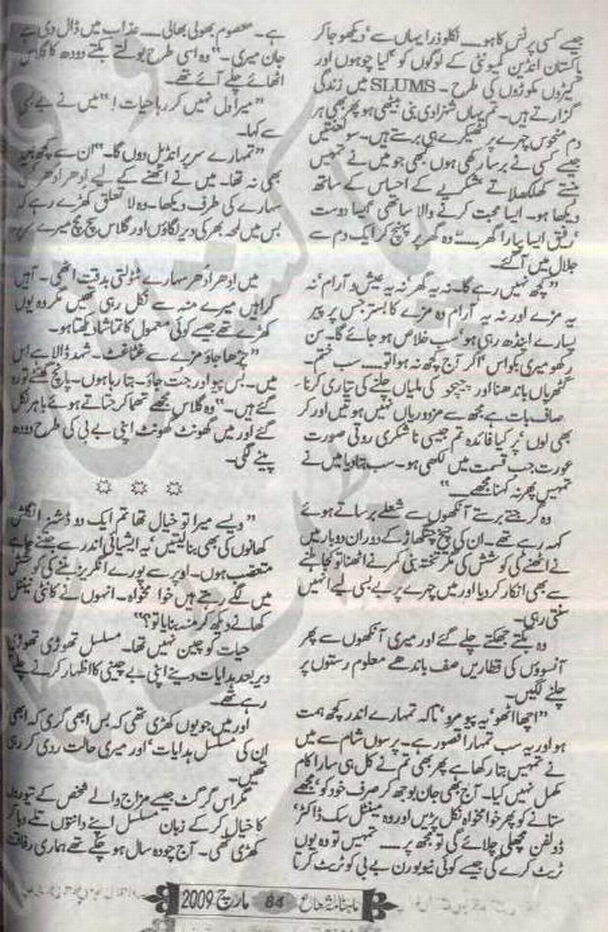 جیسے کسی پرنس کا ہو..... نکلو ذرا یہاں سے دیکھو جا کر
پاکستان انڈین کمیونٹی کے لوگوں کو کیا چوہوں اور
کیڑوں مکوڑوں کی طرح۔ SLUMS میں زندگی
گزارتے ہیں۔ تم یہاں شہزادی بنی بیٹھی ہو پھر بھی ہر
دم منحوس چہرے پر ٹھیکرے ہی برستے ہیں۔ سو لعنتیں
جیسے کسی نے برسا رکھی ہوں کبھی جو میں نے تمہیں
ہنستے کھلکھلاتے تشکر کے احساس کے ساتھ
دیکھا ہو۔ ایسا محبت کرنے والا ساتھی، مجھ سا دوست
رفیق ایسا پیارا گھر.....“ وہ گھر پر پہنچ کر ایک دم سے
جلال میں آ گئے۔
”کچھ نہیں رہے گا۔ نہ یہ گھر نہ یہ عیش و آرام، نہ
یہ مزے اور نہ یہ آرام دہ مزے کا بستر جس پر پیر
پسارے اینڈھ رہی ہو سب خلاص ہو جائے گا۔ سن
رکھو میری بکواس، اگر آج کچھ نہ ہوا تو..... سب ختم۔
گٹھریاں باندھنا اور چلنے کی تیاری کرنا۔
صاف بات ہے مجھ سے مزدوریاں نہیں ہوتیں اور کر
بھی لوں، پر کیا فائدہ تم جیسی ناشکری روتی صورت
عورت جب قسمت میں لکھی ہو۔ سب بتا دیا میں نے
تمہیں پھر نہ کہنا مجھے.....“
وہ گرجتے برستے آنکھوں سے شعلے برساتے ہوئے
کہہ رہے تھے۔ ان کی چیخ چنگھاڑ کے دوران دوبار میں
نے اٹھنے کی کوشش کی مگر تختہ بنی کمر نے اٹھنا تو کجا ہلنے
سے بھی انکار کر دیا اور میں چہرے پر بے بسی لیے انہیں
سنتی رہی۔
وہ بکتے جھکتے چلے گئے اور میری آنکھوں سے پھر
آنسوؤں کی قطاریں صف باندھے معلوم رستوں پر
چلنے لگیں۔
”اچھا اٹھو، یہ پیو مرو، تاکہ تمہارے اندر کچھ ہمت
ہو اور یہ سب تمہارا قصور ہے۔ پرسوں شام سے میں
نے تمہیں بتا رکھا ہے پھر بھی تم نے کل ہی سارا کام
مکمل نہیں کیا۔ آج بھی جان بوجھ کر صرف خود کو، مجھے
ستانے کو پھر خوامخواہ نکل پڑیں اور وہ مینٹل سک ڈاکٹر،
ڈولفن مچھلی چلائے گی تو مجھ پر..... تمہیں تو وہ یوں
ٹریٹ کرے گی جیسے کوئی نیو بورن بے بی کو ٹریٹ کرتا
ہے۔ معصوم بھولی بھالی..... عذاب میں ڈال دی ہے
جان میری۔“ وہ اسی طرح بولتے بکتے دودھ کا گلاس
اٹھائے چلے آئے تھے۔
”میرا دل نہیں کر رہا حیات!“ میں نے بے بسی
سے کہا۔
”تمہارے سر پر انڈیل دوں گا۔“ ان سے کچھ بعید
بھی نہ تھا۔ میں نے اٹھنے کے لیے ادھر ادھر کسی
سہارے کی طرف دیکھا۔ وہ لاتعلق کھڑے رہے کہ
بس میں لمحہ بھر کی دیر لگاؤں اور گلاس سچ مچ میرے سر پر
میں ادھر ادھر سہارے ٹٹولتی بدقت اٹھی۔ آہیں
کراہیں میرے منہ سے نکل رہی تھیں مگر وہ یوں
کھڑے تھے جیسے کوئی معمول کا تماشا دیکھتا ہو۔
”چڑھا جاؤ مزے سے غٹاغٹ۔ شہد ڈالا ہے اس
میں۔ بس پیو اور جت جاؤ۔ بتا رہا ہوں۔ پانچ گھنٹے تو رہ
گئے ہیں۔“ وہ گلاس مجھے تھما کر جتاتے ہوئے باہر نکل
گئے اور میں گھونٹ گھونٹ اپنی بے بی کی طرح دودھ
پینے لگی۔
☼ ☼ ☼
”ویسے میرا تو خیال تھا تم ایک دو ڈشنز انگلش
کھانوں کی بھی بنا لیتیں، یہ ایشیائی اندر سے جتنے چاہے
متعصب ہوں۔ اوپر سے پورے انگریز بننے کی کوشش
میں لگے رہتے ہیں خوامخواہ۔ انہوں نے کانٹی نینٹل
کھانے دیکھ کر منہ بنایا تو؟“
حیات کو چین نہیں تھا۔ مسلسل تھوڑی تھوڑی
دیر بعد ہدایات دیتے اپنی بے چینی کا اظہار کرتے چلے
رہے تھے۔
اور میں جو یوں کھڑی تھی کہ بس ابھی گری کہ ابھی
ان کی مسلسل ہدایات، اور میری حالت ردی کر رہی
تھیں۔
مگر اس گرگٹ جیسے مزاج والے شخص کے تیوروں
کا خیال کر کے زبان مسلسل اپنے دانتوں تلے دبا کر
کھڑی تھی۔ آج چودہ سال ہو چکے تھے ہماری رفاقت
ماہنامہ شعاع 84 مارچ 2009